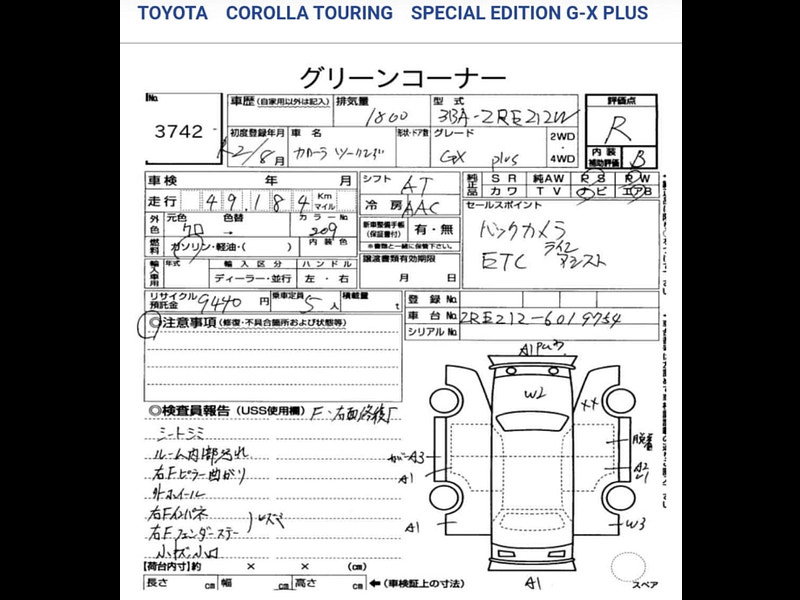 TOYOTA COROLLA TOURING SPECIAL EDITION G-X PLUS
グリーンコーナー
No. 3742
車歴 (自家用以外は記入)
排気量 1800
型式 3BA-ZRE212W
評価点 R
初度登録年月 R2/8月
車名 カローラ ツーリング
形状・ドア数
グレード G-X plus
2WD・4WD
内装補助評価 B
車検 年 月
シフト AT
純正品 SR 純AW PS PW
カワ TV ナビ エアB
走行 49,184 Km マイル
冷房 AAC
セールスポイント
バックカメラ
ETC
外色 元色 クロ 色替 → カラーNo. 209
新車整備手帳(保証書付) 有・無
※書類と一緒に保管下さい。
燃料 ガソリン・軽油・( ) 内装色
譲渡書類有効期限
月 日
輸入車用 年式 輸入区分 ディーラー・並行 ハンドル 左・右
リサイクル預託金 9440円 乗車定員 5人 積載量 t
登録No.
車台No. ZRE212-6019754
シリアルNo.
◎注意事項 (修復・不具合箇所および状態等)
◎検査員報告 (USS使用欄) F・右面修復
シートシミ
ルーム内部汚れ
右Fピラー曲がり
外ホイール
右Fインパネ
右Fフェンダーステー
小キズ小凹
A1
W2
XX
A3
A1
A2
A1
W3
A1
スペア
【荷台内寸】約 × × (cm)
長さ cm 幅 cm 高さ cm ←(車検証上の寸法)